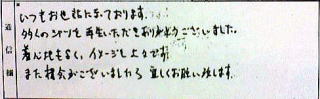 通信欄
いつもお世話になっております。
多くのシャツを再生いただきありがとうございました。
着心地もよく、イメージも上々です!
また機会がございましたら宜しくお願い致します。